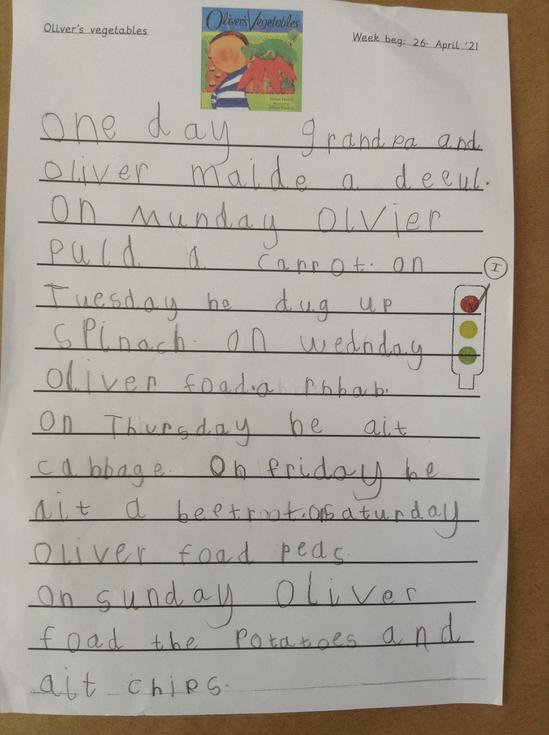 Oliver's vegetables
Oliver's Vegetables
Week beg: 26. April '21
one day grandpa and
oliver maide a deeul.
on Munday OlVier
puld a carrot. on
I
Tuesday he dug up
spinach. on wednday
oliver foad.a rhbab.
on Thursday he ait
cabbage. On friday he
ait a beetroot.on saturday
Oliver foad peas.
on sunday Oliver
foad the potatoes and
ait chips.